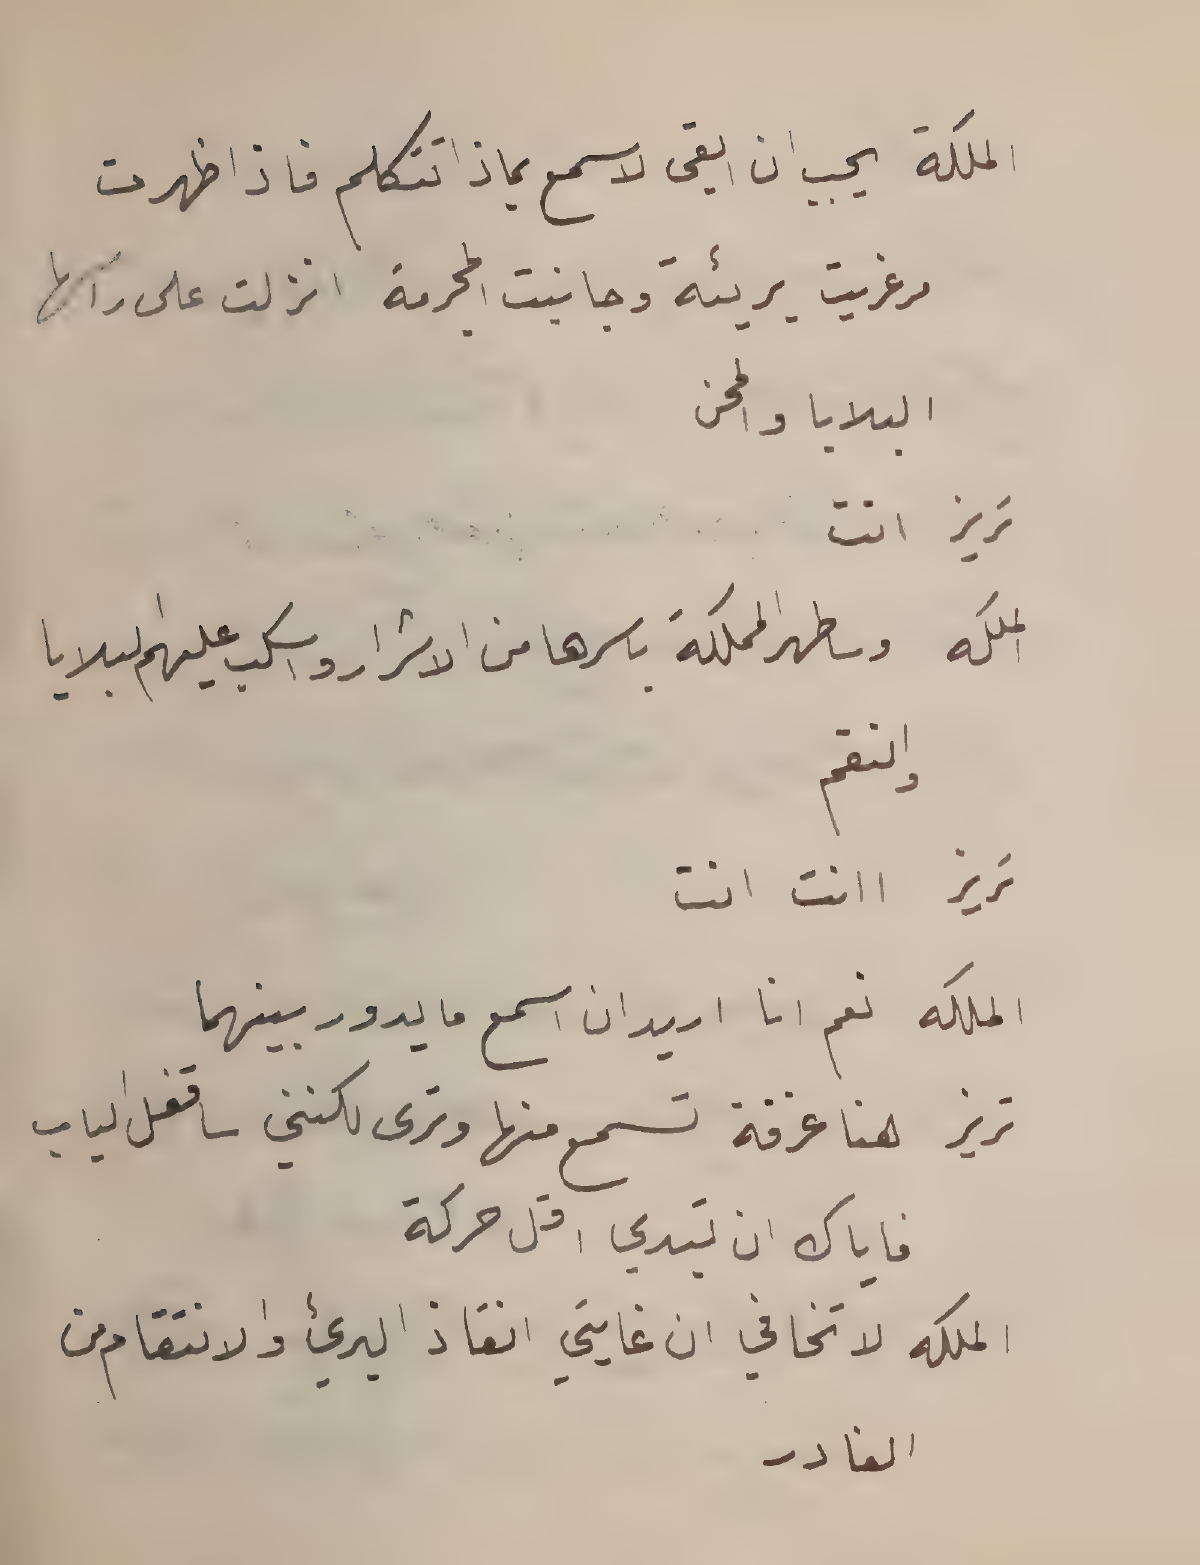 الملكة يجب ان ابقى لاسمع بماذا تتكلم فاذا ظهرت
مرغريت بريئة وجانيت المجرمة انزلت على راسها
البلايا والمحن
تريز انت
الملكه وساطهر المملكة باسرها من الاشرار واسكب عليهم البلايا
والنقم
تريز اانت انت
الملكه نعم انا اريد ان اسمع ما يدور بينهما
تريز هنا غرفة تسمع منها وترى لكنني ساقفل الباب
فاياك ان تبدي اقل حركة
الملكه لا تخافي ان غايتي انقاذ البرئ والانتقام من
الغادر